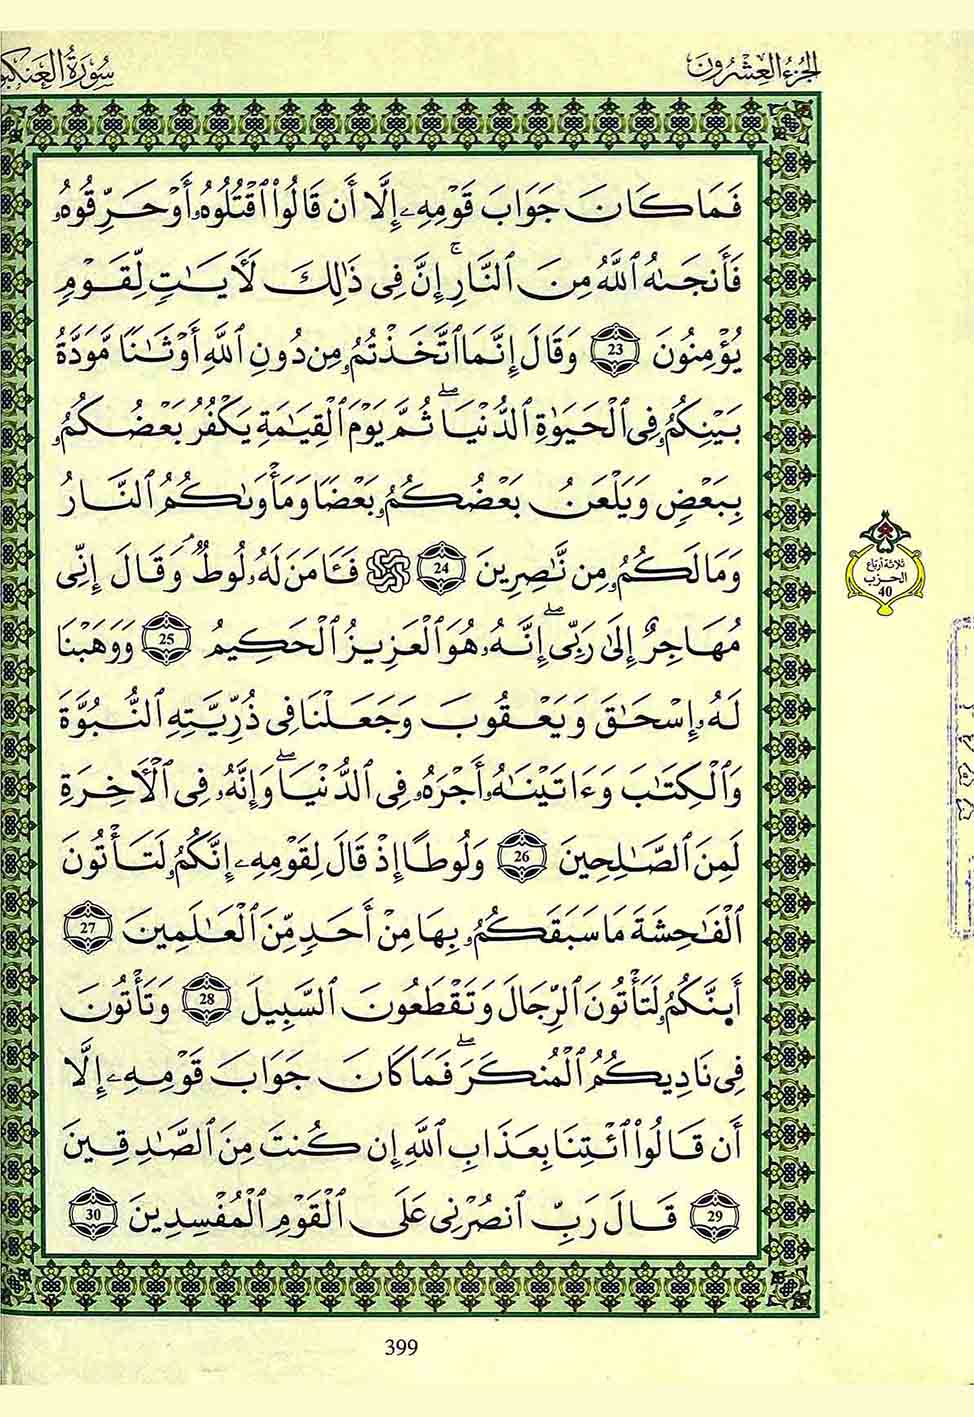 الجزء العشرون
سورة العنكبو
فَمَا كَانَ جَوَابَ قَوْمِهِۦٓ إِلَّآ أَن قَالُواْ ٱقْتُلُوهُۥٓ أَوْ حَرِّقُوهُۥ
فَأَنجَىٰهُ ٱللَّهُ مِنَ ٱلنَّارِۚ إِنَّ فِى ذَٰلِكَ لَأَيَـٰتٍ لِّقَوْمٍ
يُؤْمِنُونَ 23 وَقَالَ إِنَّمَا ٱتَّخَذْتُمُۥ مِن دُونِ ٱللَّهِ أَوْثَـٰنًا مَّوَدَّةُ
بَيْنِكُمُۥ فِى ٱلْحَيَوٰةِ ٱلدُّنْيَاۖ ثُمَّ يَوْمَ ٱلْقِيَـٰمَةِ يَكْفُرُ بَعْضُكُمُۥ
بِبَعْضٍ وَيَلْعَنُ بَعْضُكُمُۥ بَعْضًا وَمَأْوَىٰكُمُ ٱلنَّارُ
وَمَا لَكُمُۥ مِن نَّـٰصِرِينَ 24 فَـَٔامَنَ لَهُۥ لُوطٌۘ وَقَالَ إِنِّى
مُهَاجِرٌ إِلَىٰ رَبِّىۖ إِنَّهُۥ هُوَ ٱلْعَزِيزُ ٱلْحَكِيمُ 25 وَوَهَبْنَا
لَهُۥٓ إِسْحَـٰقَ وَيَعْقُوبَ وَجَعَلْنَا فِى ذُرِّيَّتِهِ ٱلنُّبُوَّةَ
وَٱلْكِتَـٰبَ وَءَاتَيْنَـٰهُۥٓ أَجْرَهُۥ فِى ٱلدُّنْيَاۖ وَإِنَّهُۥ فِى ٱلْأَخِرَةِ
لَمِنَ ٱلصَّـٰلِحِينَ 26 وَلُوطًا إِذْ قَالَ لِقَوْمِهِۦٓ إِنَّكُمُۥ لَتَأْتُونَ
ٱلْفَـٰحِشَةَ مَا سَبَقَكُمُۥ بِهَا مِنْ أَحَدٍ مِّنَ ٱلْعَـٰلَمِينَ 27
أَىنَّكُمُۥ لَتَأْتُونَ ٱلرِّجَالَ وَتَقْطَعُونَ ٱلسَّبِيلَ 28 وَتَأْتُونَ
فِى نَادِيكُمُ ٱلْمُنكَرَۖ فَمَا كَانَ جَوَابَ قَوْمِهِۦٓ إِلَّآ
أَن قَالُواْ ٱئْتِنَا بِعَذَابِ ٱللَّهِ إِن كُنتَ مِنَ ٱلصَّـٰدِقِينَ
29 قَالَ رَبِّ ٱنصُرْنِى عَلَى ٱلْقَوْمِ ٱلْمُفْسِدِينَ 30
ثلاثة أرباع
الحزب
40
399